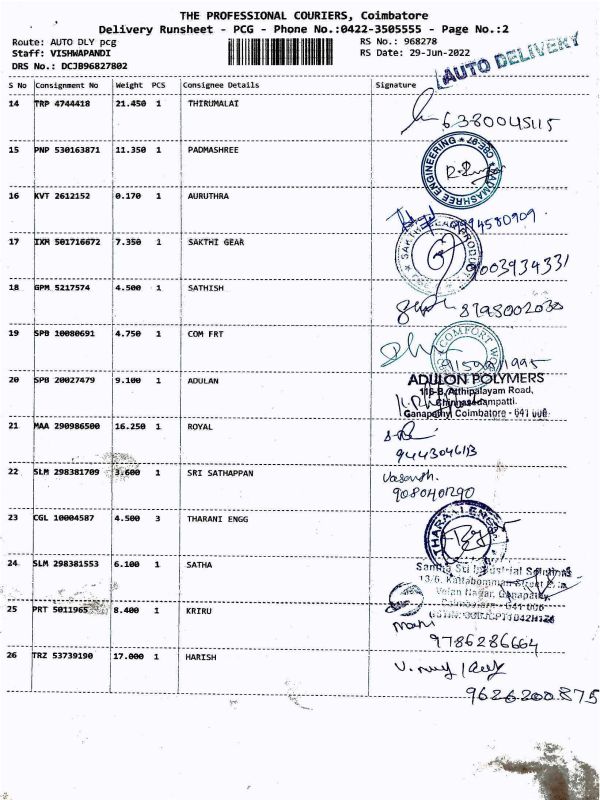 THE PROFESSIONAL COURIERS, Coimbatore
Delivery Runsheet - PCG - Phone No.:0422-3505555 - Page No.:2
Route: AUTO DLY pcg RS No.: 968278
Staff: VISHWAPANDI RS Date: 29-Jun-2022
DRS No.: DCJB96827802
AUTO DELIVERY
S No Consignment No Weight PCS Consignee Details Signature
14 TRP 4744418 21.450 1 THIRUMALAI
6380045115
15 PNP 530163871 11.350 1 PADMASHREE
PADMASHREE ENGINEERING * CBE-97 *
16 KVT 2612152 0.170 1 AURUTHRA
9994580909
17 IXM 501716672 7.350 1 SAKTHI GEAR
SAKTHI GEAR PRODUCTS
9003934331
18 GPM 5217574 4.500 1 SATHISH
19 SPB 10080691 4.750 1 COM FRT
COMFORT
20 SPB 20027479 9.100 1 ADULAN
ADULON POLYMERS
Atthipalayam Road,
Chinnavedampatti.
Ganapathy, Coimbatore - 641 006.
21 MAA 290986500 16.250 1 ROYAL
22 SLM 298381709 3.600 1 SRI SATHAPPAN
Vasanth.
9080401290
23 CGL 10004587 4.500 3 THARANI ENGG
THARANI ENGG
24 SLM 298381553 6.100 1 SATHA
Industrial Solutions
13/6, Kattabomman Street
Ganapathy,
Coimbatore - 641 006
25 PRT 5011965 8.400 1 KRIRU
mani
9786286664
26 TRZ 53739190 17.000 1 HARISH
9626200875